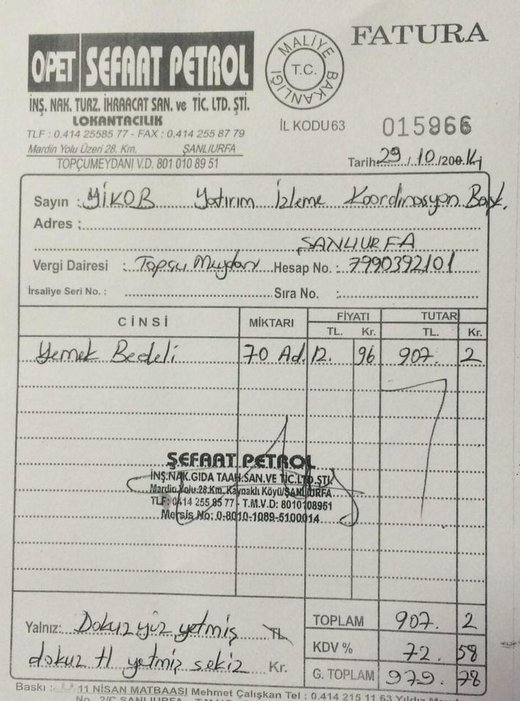 FATURA
OPET ŞEFAAT PETROL
İNŞ. NAK. TURZ. İHRACAAT SAN. ve TİC. LTD. ŞTİ.
LOKANTACILIK
TLF : 0.414 25585 77 - FAX : 0.414 255 87 79
Mardin Yolu Üzeri 28. Km. ŞANLIURFA
TOPÇUMEYDANI V.D. 801 010 89 51
MALİYE BAKANLIĞI
T.C.
İL KODU63 015966
Tarih: 29/10/2014
Sayın : YİKOB Yatırım İzleme Koordinasyon Başk.
Adres :
ŞANLIURFA
Vergi Dairesi : Topçu Meydanı Hesap No. : 7990392101
İrsaliye Seri No. : Sıra No. :
CİNSİ MİKTARI FİYATI TUTARI
TL. Kr. TL. Kr.
Yemek Bedeli 70 Ad. 12. 96 907. 2
ŞEFAAT PETROL
İNŞ.NAK.GIDA TAAH.SAN.VE TİC.LTD.ŞTİ.
Mardin Yolu 28.Km. Kaynaklı Köyü/ŞANLIURFA
TLF: 0414 255 85 77 - T.M.V.D: 8010108951
Mersis No: 0-8010-1089-5100014
TOPLAM 907. 2
Yalnız: Dokuz yüz yetmiş TL
KDV % 72. 58
dokuz tl yetmiş sekiz Kr.
G. TOPLAM 979. 78
Baskı : 11 NİSAN MATBAASI Mehmet Çalışkan Tel : 0.414 215 11 63 Yıldız